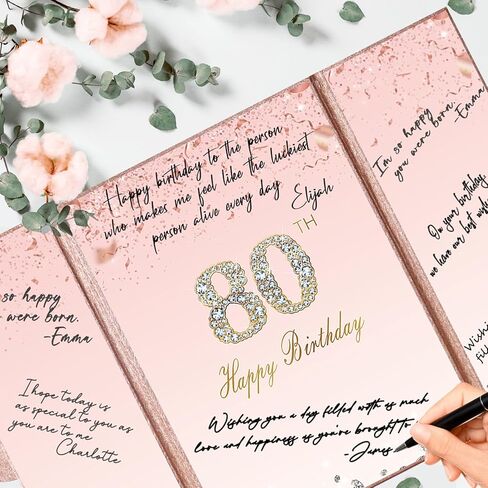 so happy
were born.
-Emma
I hope today is
as special to you as
you are to me
Charlotte
Happy birthday to the person
who makes me feel like the luckiest
person alive every day
Elijah
80TH
Happy Birthday
Wishing you a day filled with is much
love and happiness is you're brought to
-James
I'm so happy
you were born.
-Emma
On your birthday,
we have our best wishes
Wishing
fill